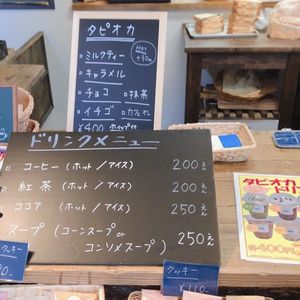 タピオカ
Hot
+30円
□ミルクティー
□キャラメル
□チョコ □抹茶
□イチゴ □カフェオレ
¥400
ドリンクメニュー
□ コーヒー (ホット/アイス) 200えん
□ 紅茶 (ホット/アイス) 200えん
□ ココア (ホット/アイス) 250えん
スープ (コーンスープ or
コンソメスープ) 250えん
タピオカ
クッキー
クッキー
¥110